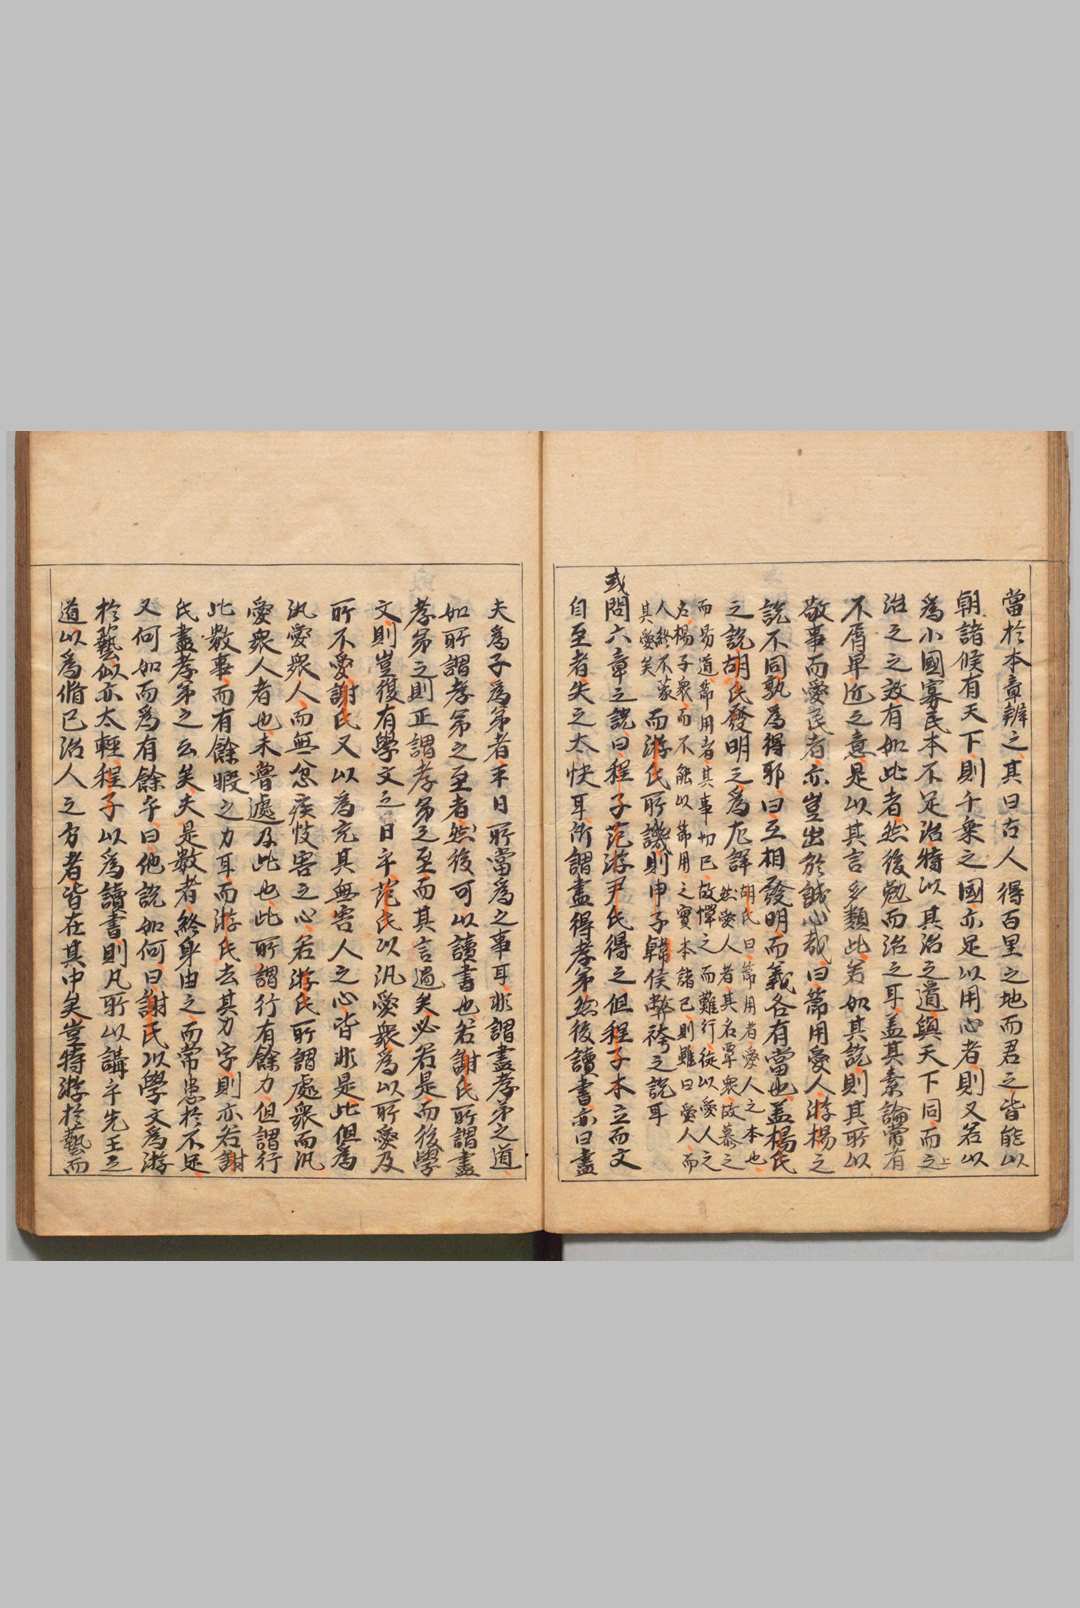 當於本章辨之其曰古人得百里之地而君之皆能以
朝諸侯有天下則千乘之國亦足以用心者則又若以
爲小國寡民本不足治特以其治之道與天下同而之上
治之之效有如此者然後勉而治之耳蓋其素論常有
不屑卑近之意是以其言多類此若如其說則其所以
敬事而愛民者亦豈出於誠心哉曰節用愛人游楊之
說不同孰爲得耶曰互相發明而義各有當也蓋楊氏
之說胡氏發明之爲尤詳
胡氏曰節用者愛人之本也
然愛人者其名覃衆故慕之
而易道節用者其事切已故憚之而難行徒以愛人之
名揚于衆而不能以節用之實本諸已則雖曰愛人而
人終不蒙
其愛矣
而游氏所譏則申子韓侯弊袴之說耳
或問六章之說曰程子范游尹氏得之但程子本立而文
自至者失之太快耳所謂盡得孝弟然後讀書亦曰盡
夫爲子爲弟者平日所當爲之事耳非謂盡孝弟之道
如所謂孝弟之至者然後可以讀書也若謝氏所謂盡
孝弟之則正謂孝弟之至而其言過矣必若是而後學
文則豈復有學文之日乎范氏以汎愛衆爲以所愛及
所不愛謝氏又以爲充其無害人之心皆非是此但爲
汎愛衆人而無忿疾忮害之心若游氏所謂處衆而汎
愛衆人者也未嘗遽及此也此所謂行有餘力但謂行
此數事而有餘暇之力耳而游氏去其力字則亦若謝
氏盡孝弟之云矣夫是數者終身由之而常患於不足
又何如而爲有餘乎曰他說如何曰謝氏以學文爲游
於藝似亦太輕程子以爲讀書則凡所以講乎先王之
道以爲脩已治人之方者皆在其中矣豈特游於藝而